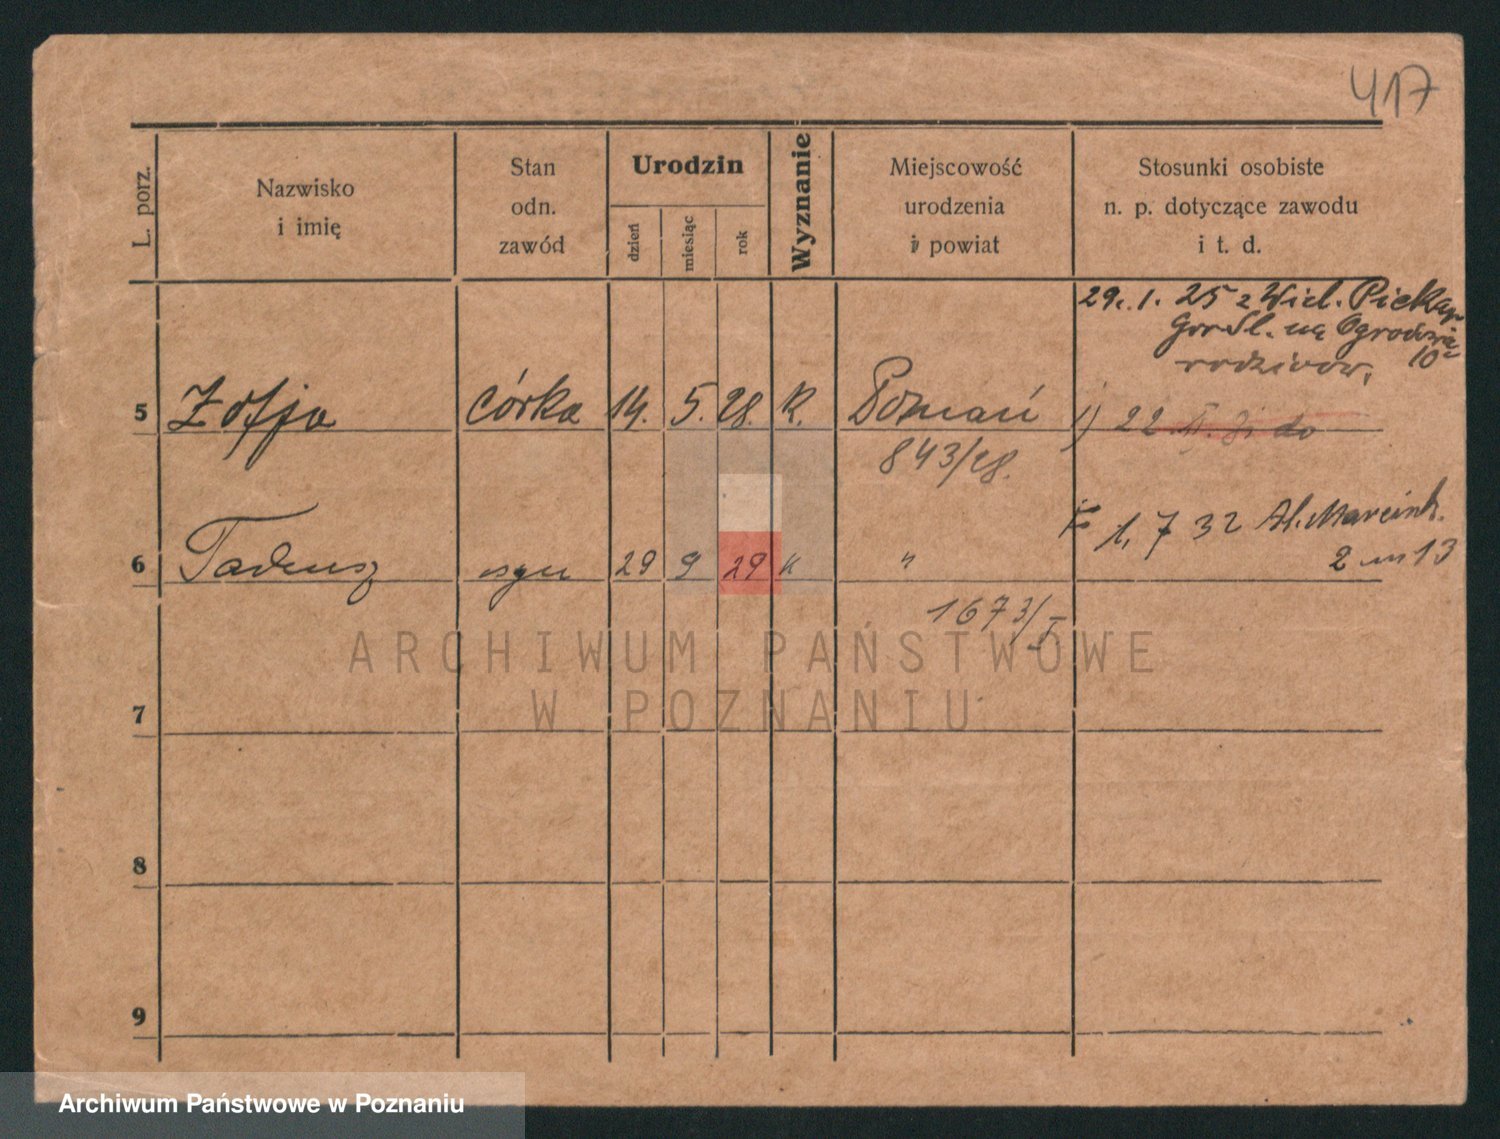 417
L. porz.
Nazwisko
i imię
Stan
odn.
zawód
Urodzin
dzień
miesiąc
rok
Wyznanie
Miejscowość
urodzenia
i powiat
Stosunki osobiste
n. p. dotyczące zawodu
i t. d.
29. 1. 25 z Wiel. Piekar
Gór Śl. na
rodziców, 10
5 Zofja córka 14. 5. 28. K. Poznań
22 do
843/28.
1, 7 32 Al. Marcink.
2 m 13
6 Tadeusz syn 29 9 29 K "
1673/I
ARCHIWUM PAŃSTWOWE
W POZNANIU
7
8
9
Archiwum Państwowe w Poznaniu